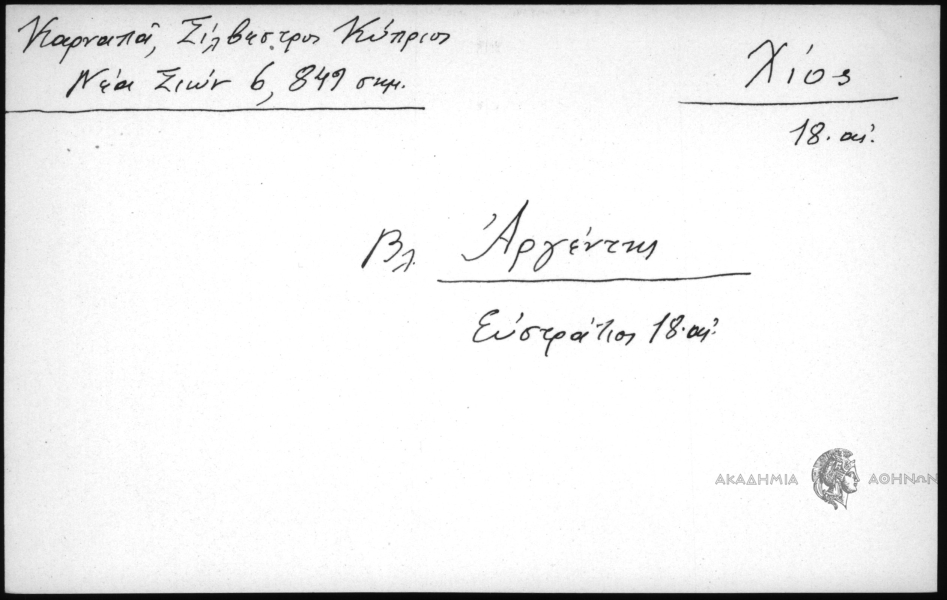 Καρναπᾶ, Σίλβεστρος Κύπριος
Νέα Σιών 6, 849 σημ.
Χίος
18. αἰ.
Βλ. Ἀργέντης
Εὐστράτιος 18. αἰ.
ΑΚΑΔΗΜΙΑ ΑΘΗΝΩΝ